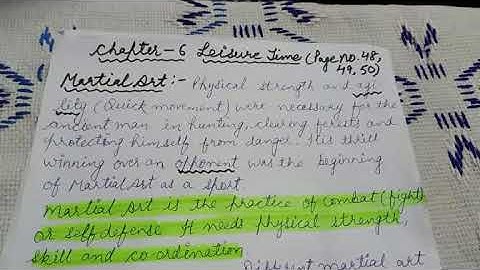 Chapter-6 Leisure Time (Page no. 48,
49, 50)
Martial Art:- Physical strength and agi
lity (Quick movement) were necessary for the
ancient man in hunting, clearing forests and
protecting himself from danger. His thrill
winning over an opponent was the beginning
of Martial Art as a sport
Martial Art is the practice of combat (fight)
or self defense It needs physical strength,
skill and co ordination
Different martial art